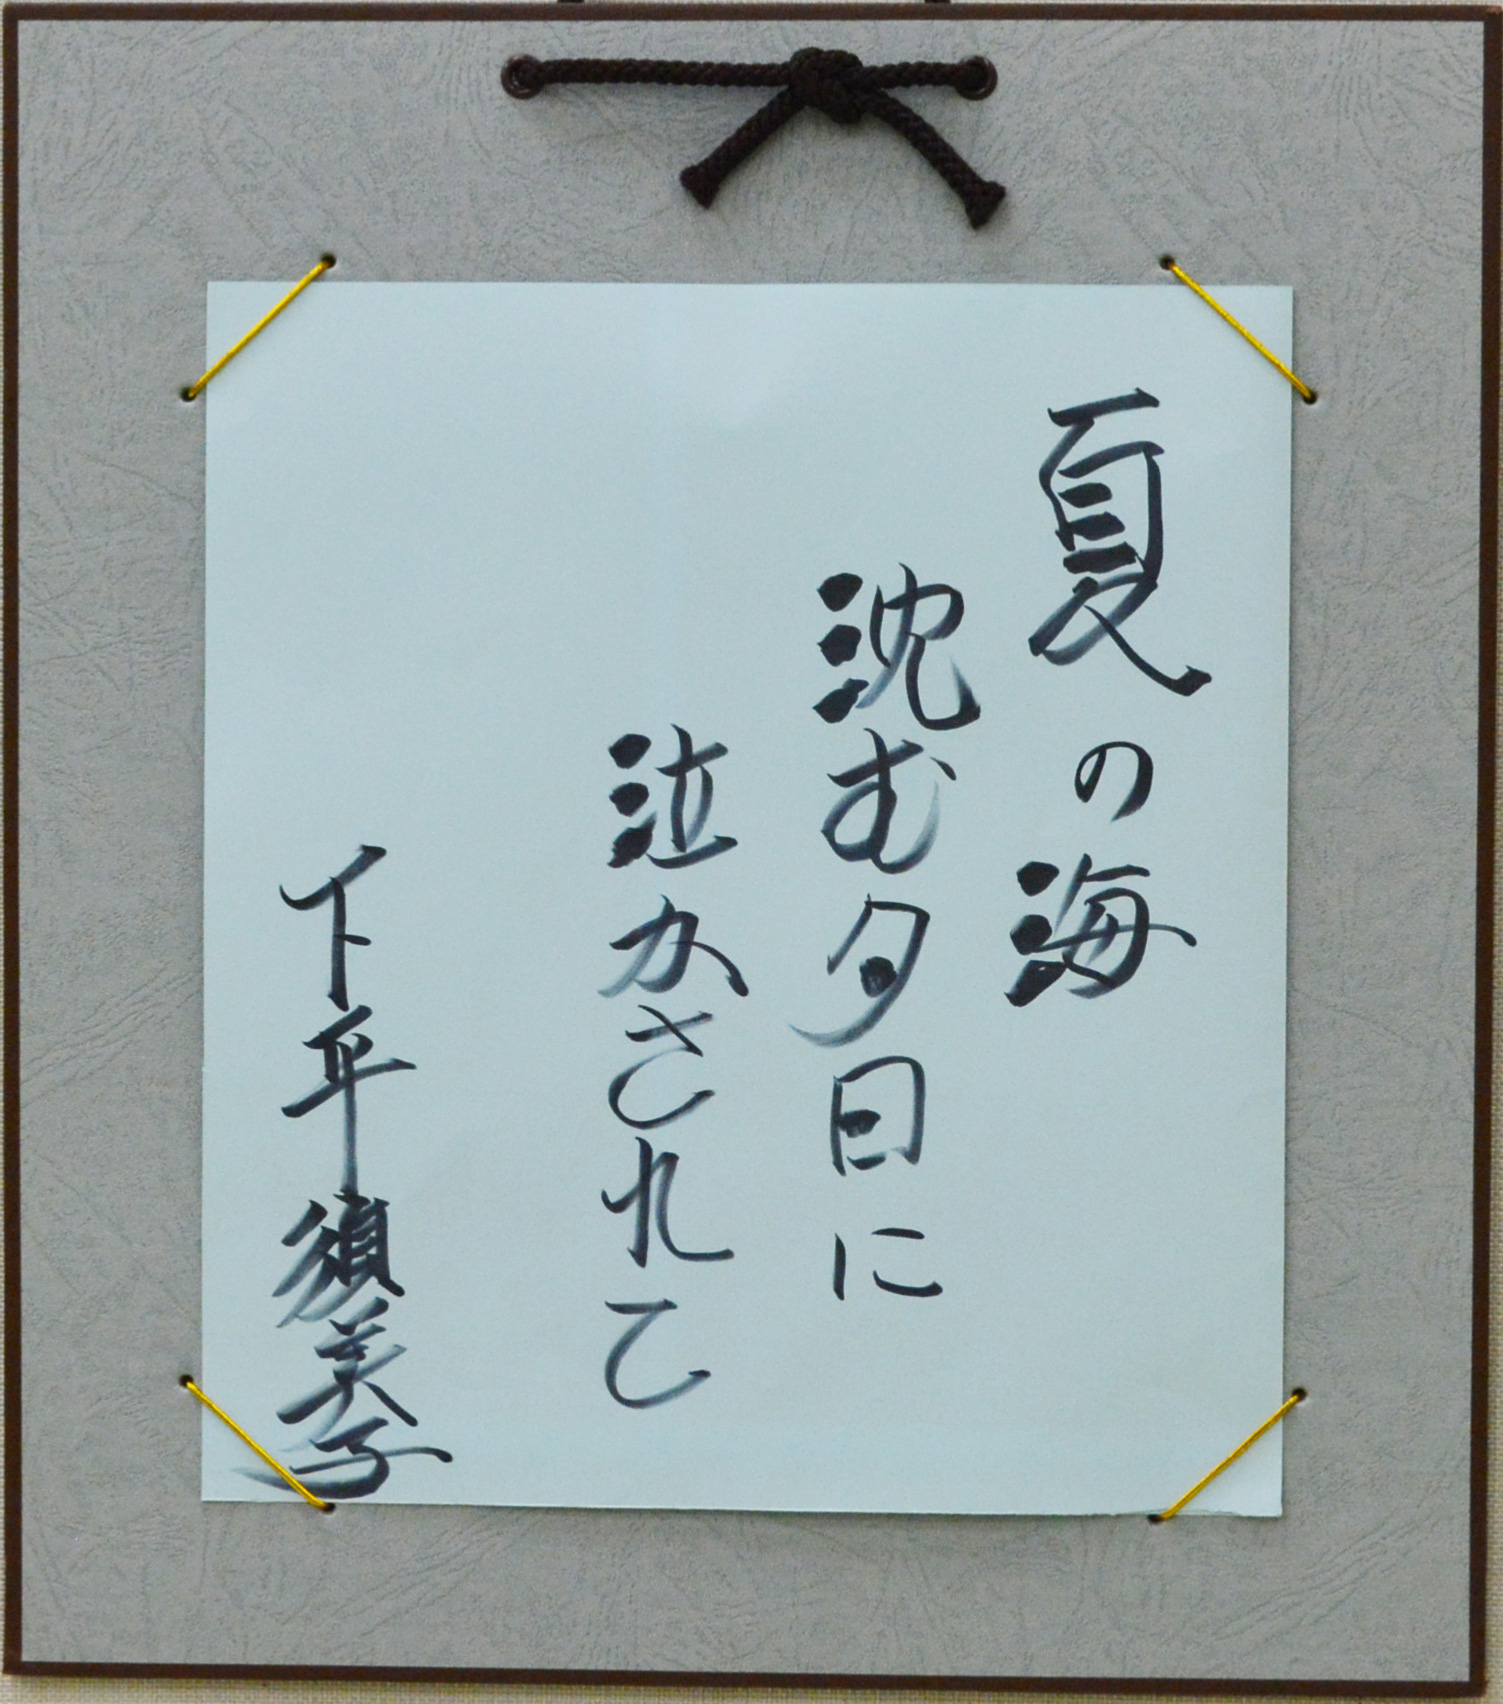 夏の海
沈む夕日に
泣かされて
下平須美子